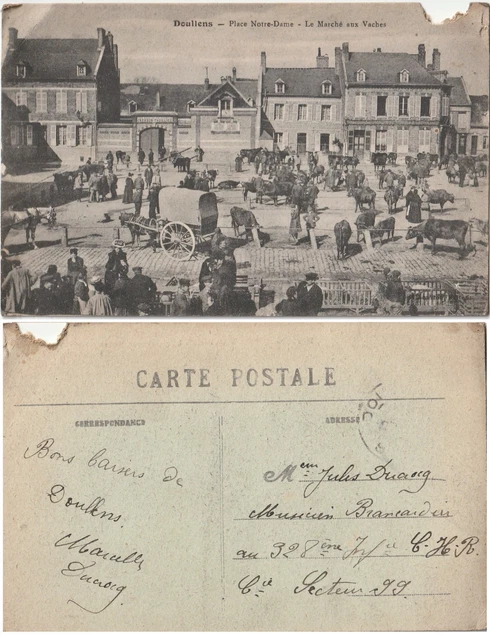 Doullens – Place Notre-Dame – Le Marché aux Vaches
CARTE POSTALE
CORRESPONDANCE
ADRESSE
Bons baisers de
Doullens.
Marcelle
Ducrocq.
Mem Jules Ducrocq
Musicien Brancardier
au 328ème Infie C.H.R.
Cie Secteur 99.